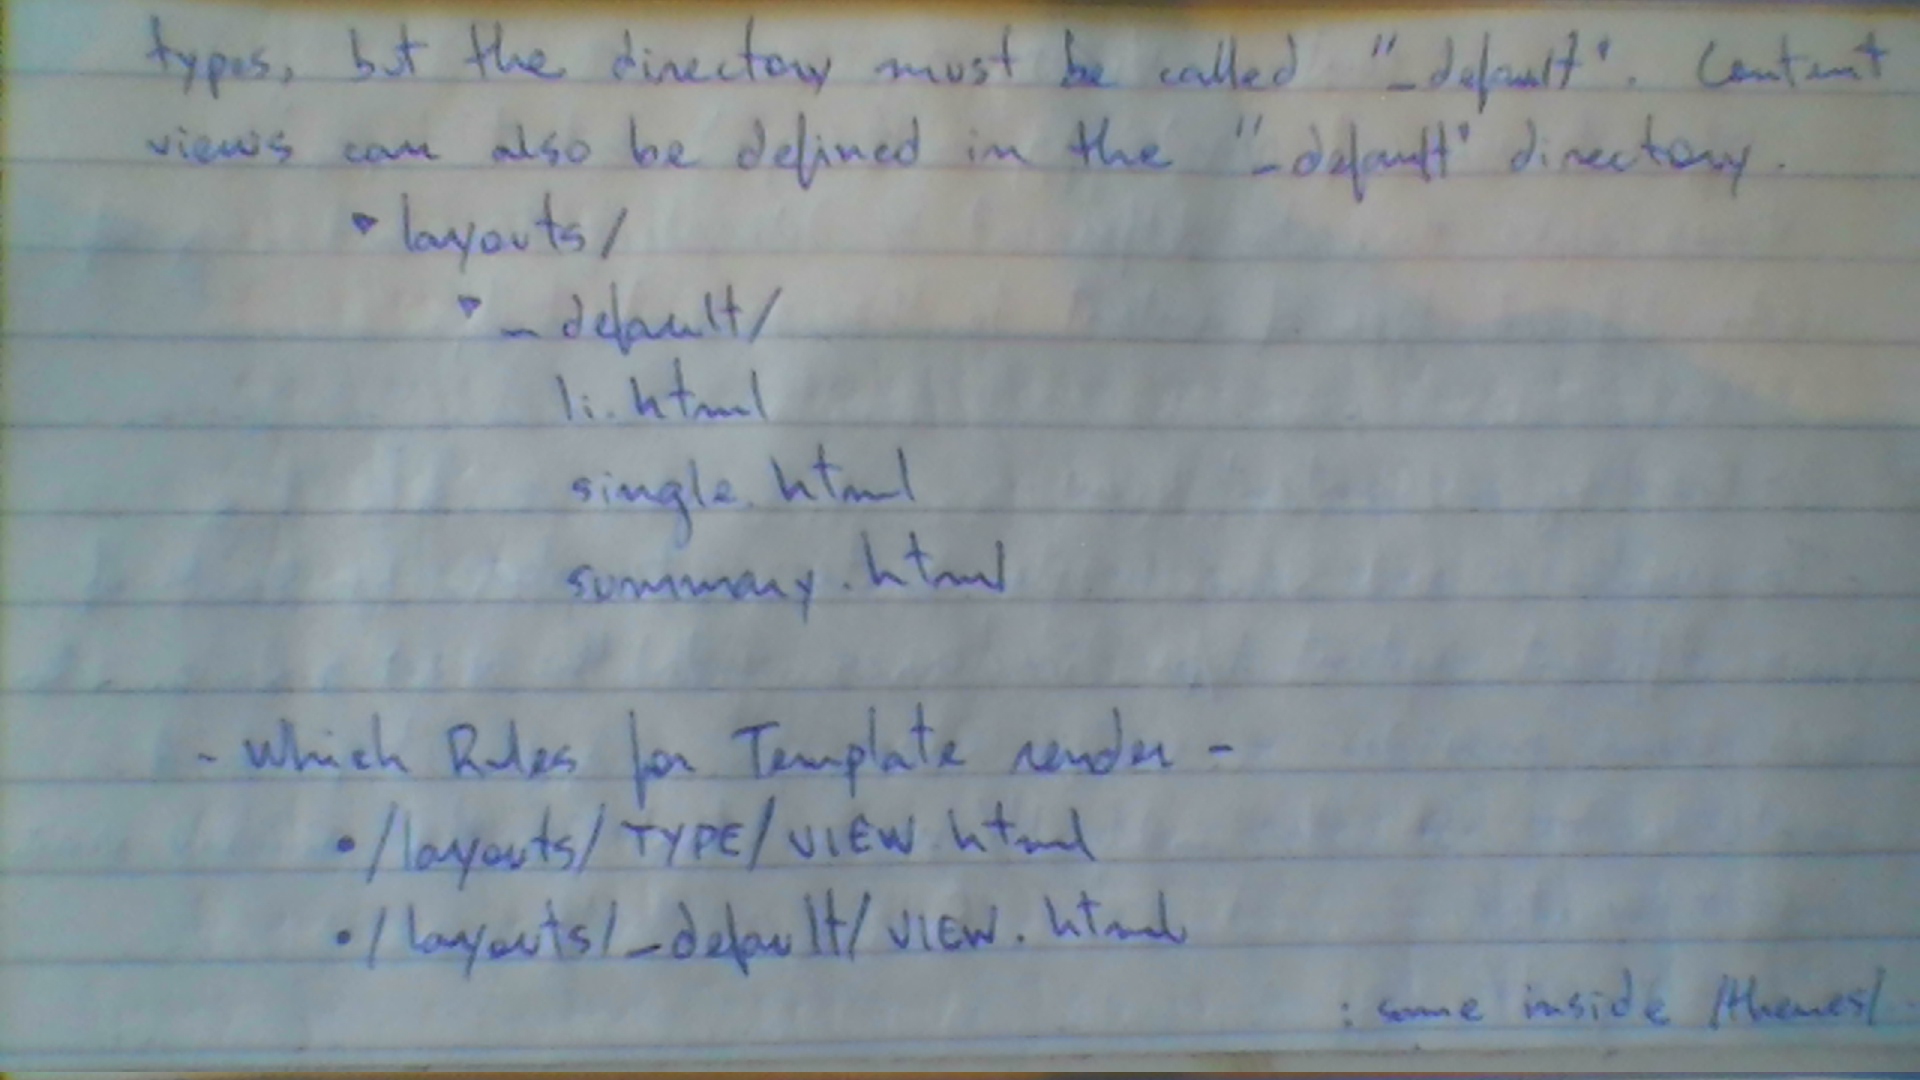 types, but the directory must be called "_default". Content
views can also be defined in the "_default" directory.
▾ layouts/
▾ _default/
li.html
single.html
summary.html
- Which Rules for Template render -
• /layouts/TYPE/VIEW.html
• /layouts/_default/VIEW.html
: same inside /themes/